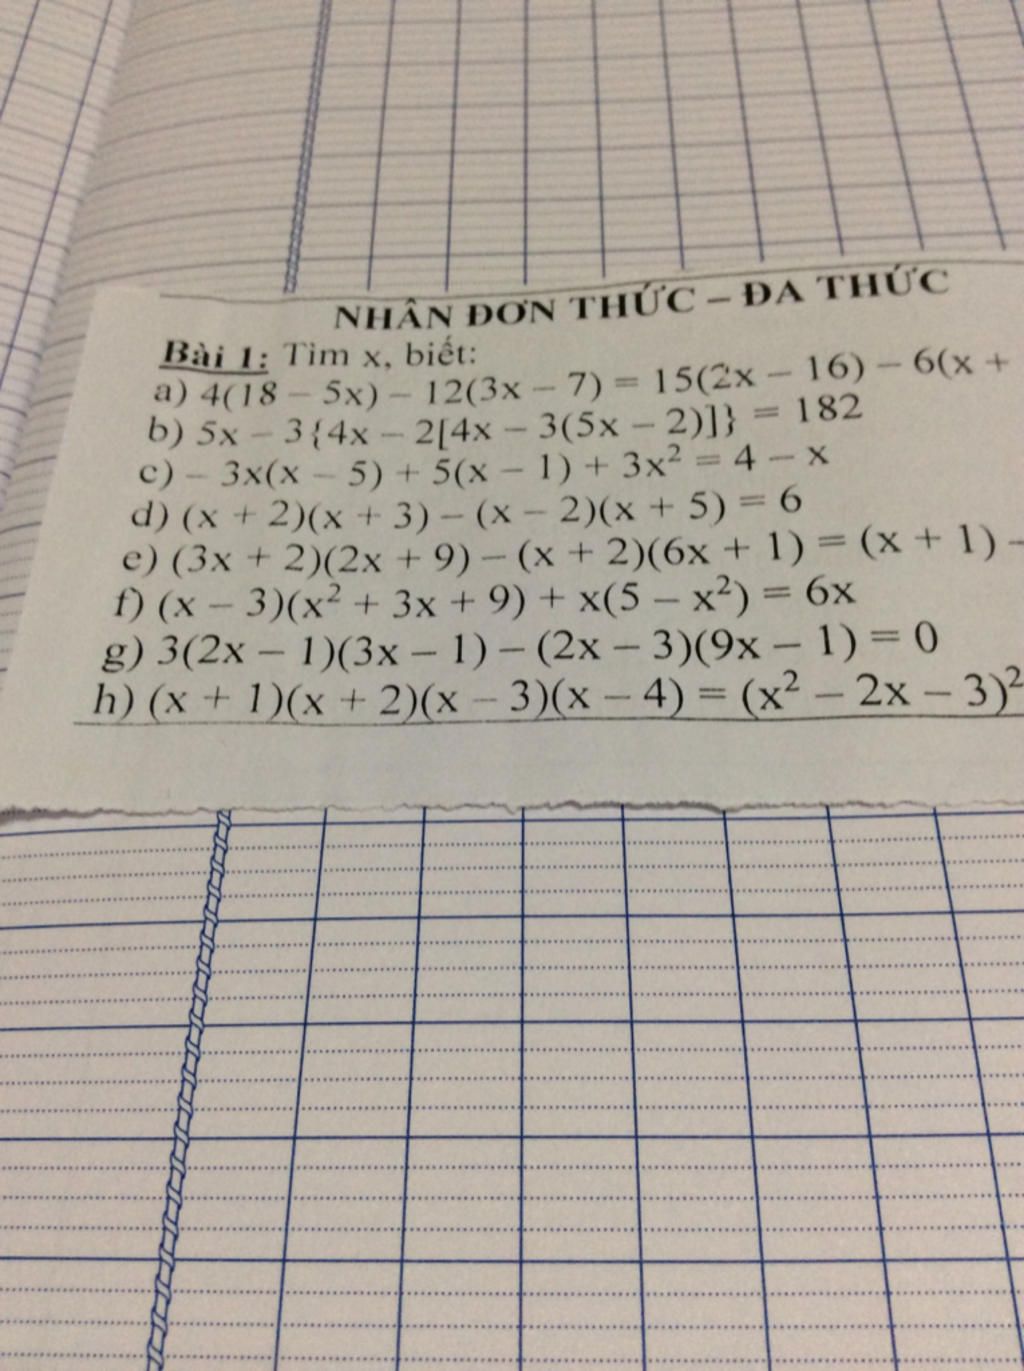 NHÂN ĐƠN THỨC – ĐA THỨC
Bài 1: Tìm x, biết:
a) 4(18 – 5x) – 12(3x – 7) = 15(2x – 16) – 6(x +
b) 5x – 3{4x – 2[4x – 3(5x – 2)]} = 182
c) – 3x(x – 5) + 5(x – 1) + 3x² = 4 – x
d) (x + 2)(x + 3) – (x – 2)(x + 5) = 6
e) (3x + 2)(2x + 9) – (x + 2)(6x + 1) = (x + 1) –
f) (x – 3)(x² + 3x + 9) + x(5 – x²) = 6x
g) 3(2x – 1)(3x – 1) – (2x – 3)(9x – 1) = 0
h) (x + 1)(x + 2)(x – 3)(x – 4) = (x² – 2x – 3)²